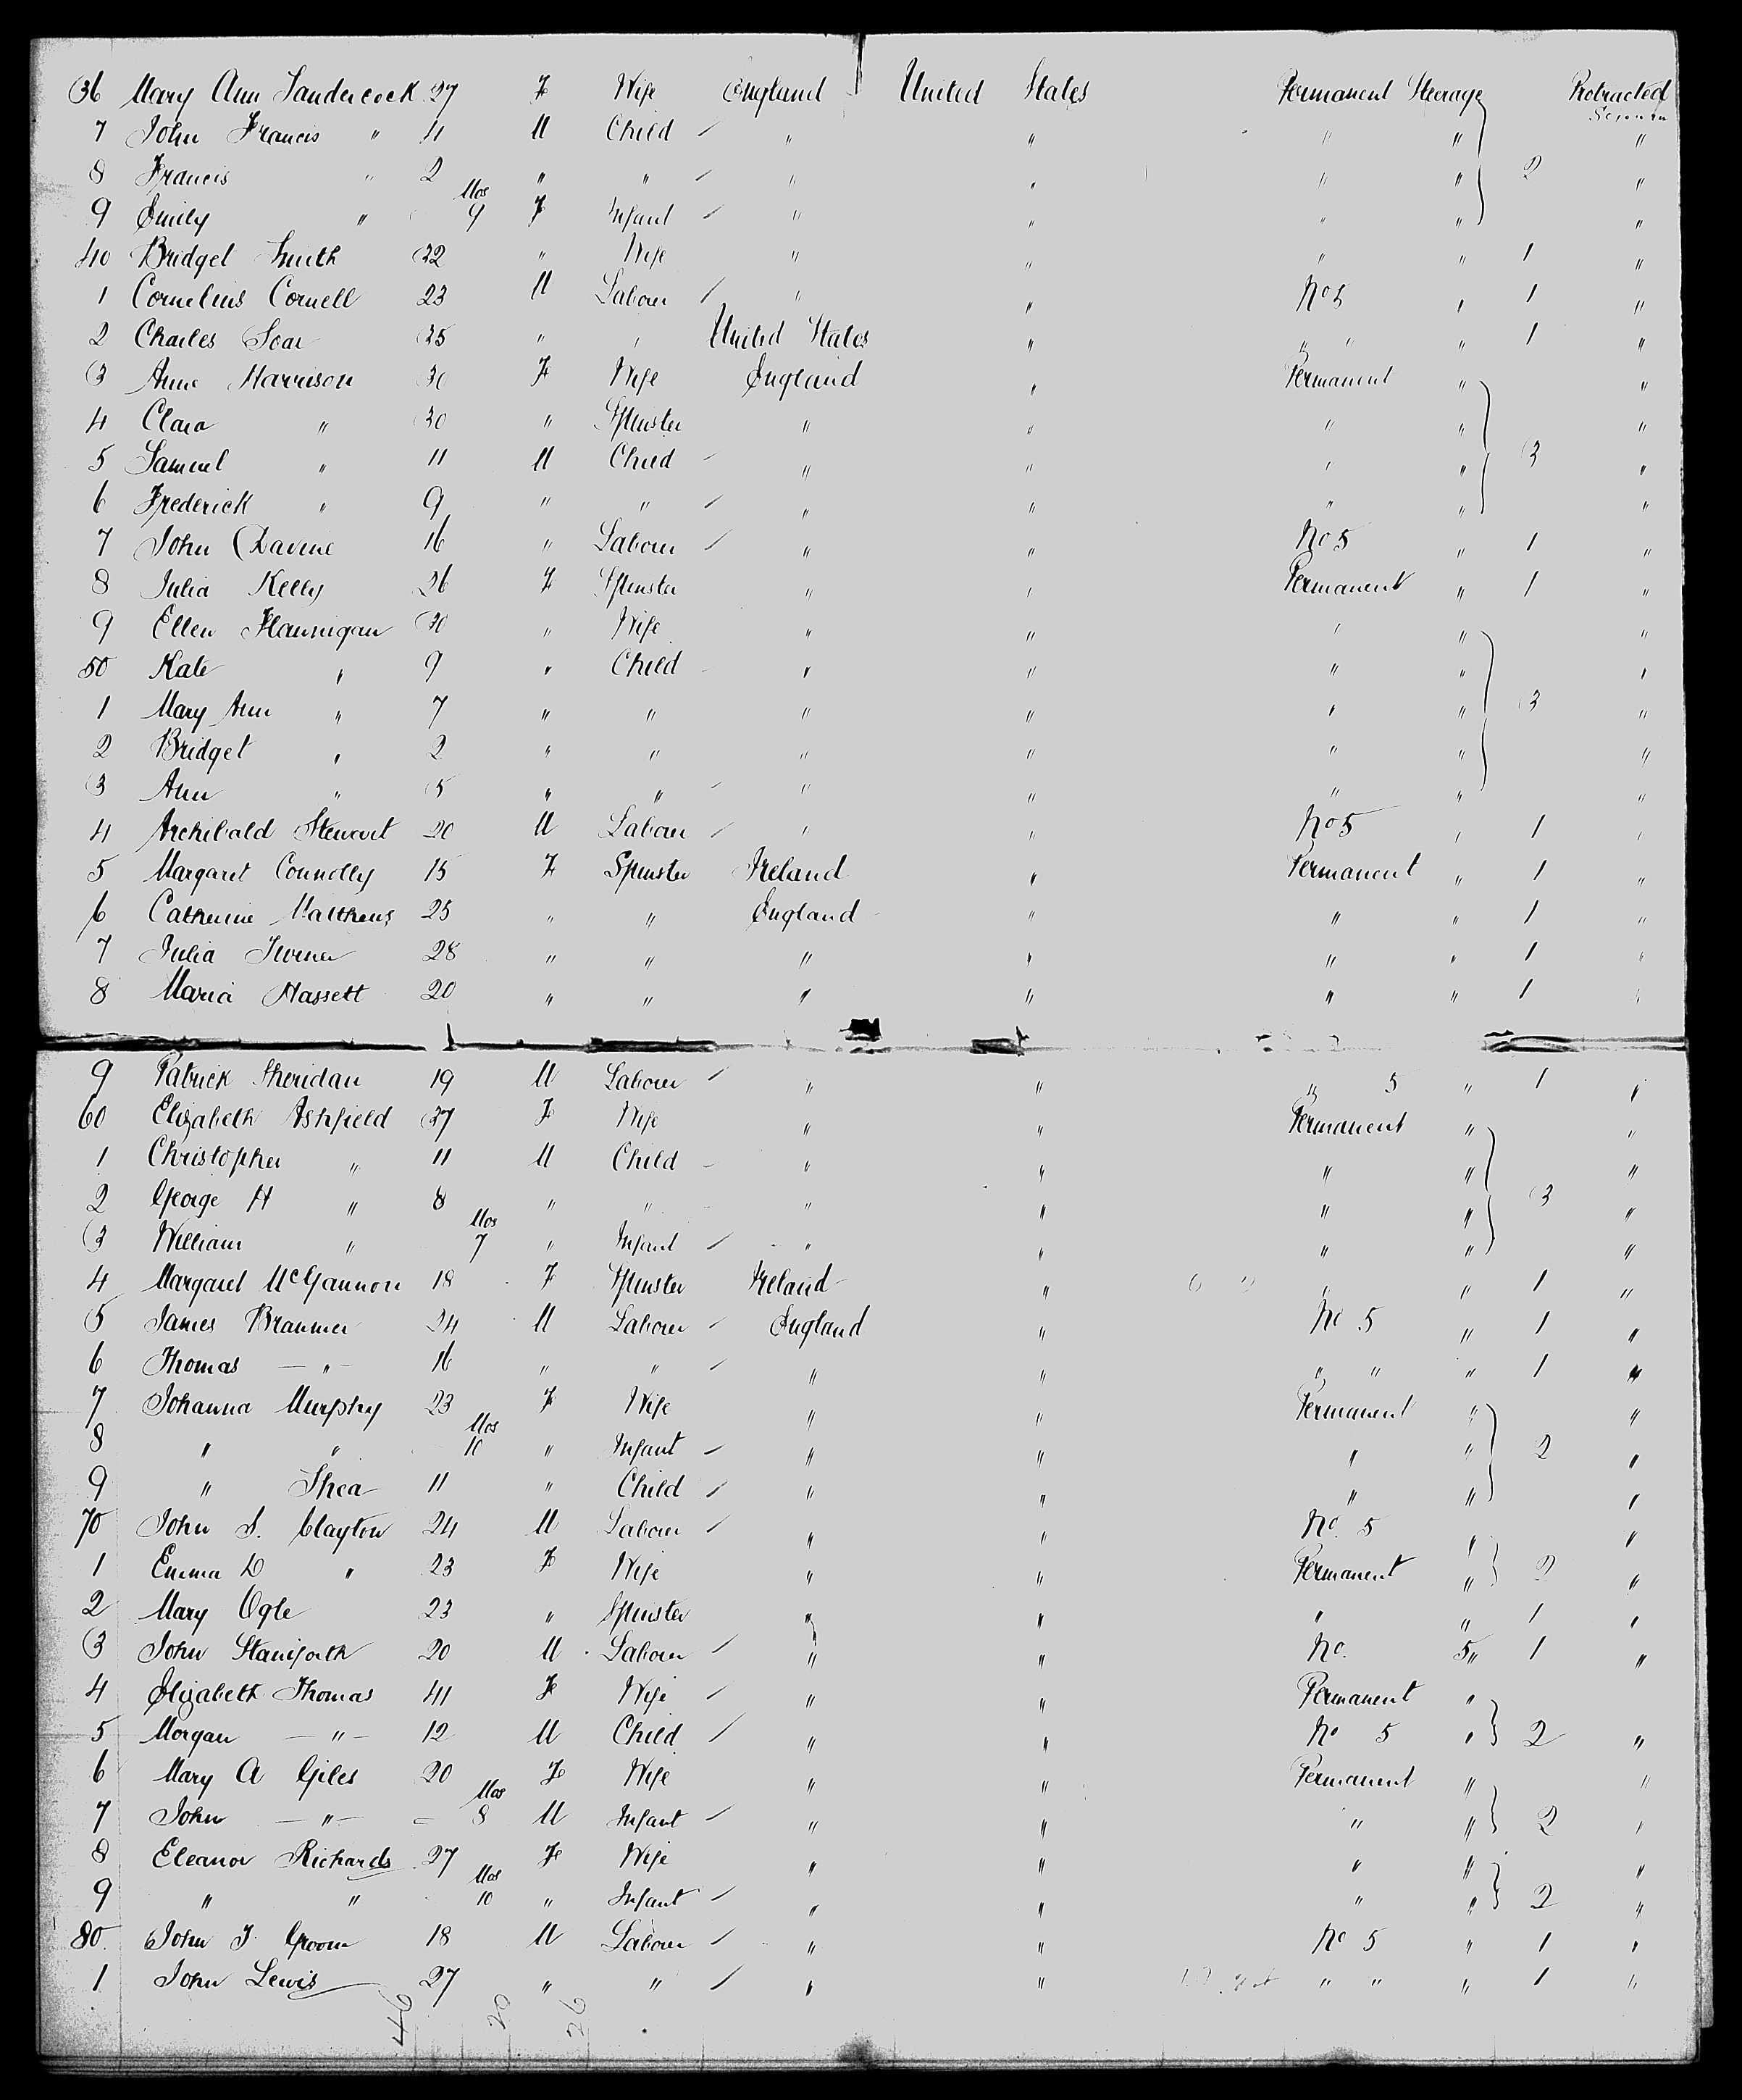 36 Mary Ann Sandercock 27 F Wife England United States Permanent Steerage Protracted Sojourn
7 John Francis " 4 M Child " " " " "
8 Francis " 2 " " " " " " 2 "
9 Emily " Mos 9 F Infant " " " " "
40 Bridget Smith 32 " Wife " " " " 1 "
1 Cornelius Cornell 23 M Labour " " No 5 " 1 "
2 Charles Soar 35 " " United States " " " " 1 "
3 Anne Harrison 30 F Wife England " Permanent " "
4 Clara " 30 " Spinster " " " " "
5 Samuel " 11 M Child " " " " 3 "
6 Frederick " 9 " " " " " " "
7 John Davine 16 " Labour " " No 5 " 1 "
8 Julia Kelly 26 F Spinster " " Permanent " 1 "
9 Ellen Flannigan 30 " Wife " " " " "
50 Kate " 9 " Child " " " " "
1 Mary Ann " 7 " " " " " " 3 "
2 Bridget " 2 " " " " " " "
3 Ann " 5 " " " " " " "
4 Archibald Stewart 20 M Labour " " No 5 " 1 "
5 Margaret Connolly 15 F Spinster Ireland " Permanent " 1 "
6 Catherine Matthews 25 " " England " " " 1 "
7 Julia 28 " " " " " " 1 "
8 Maria Hassett 20 " " " " " " 1 "
9 Patrick Sheridan 19 M Labour " " " 5 " 1 "
60 Elizabeth Ashfield 37 F Wife " " Permanent " "
1 Christopher " 11 M Child " " " " "
2 George H " 8 " " " " " " 3 "
3 William " Mos 7 " Infant " " " " "
4 Margaret McGannon 18 F Spinster Ireland " " " 1 "
5 James Brammer 24 M Labour England " No 5 " 1 "
6 Thomas — " — 16 " " " " " " " 1 "
7 Johanna Murphy 23 F Wife " " Permanent " "
8 " " Mos 10 " Infant " " " " 2 "
9 " Shea 11 " Child " " " " "
70 John S. Clayton 24 M Labour " " No. 5 " "
1 Emma D " 23 F Wife " " Permanent " 2 "
2 Mary Ogle 23 " Spinster " " " " 1 "
3 John Staniforth 20 M Labour " " No. 5 " 1 "
4 Elizabeth Thomas 41 F Wife " " Permanent "
5 Morgan — " — 12 M Child " " No 5 " 2 "
6 Mary A Giles 20 F Wife " " Permanent " "
7 John — " — = Mos 8 M Infant " " " " 2 "
8 Eleanor Richards 27 F Wife " " " " "
9 " " Mos 10 " Infant " " " " 2 "
80. John J. Groom 18 M Labour " " No 5 " 1 "
1 John Lewis 27 " " " " " " " 1 "
46 20 26